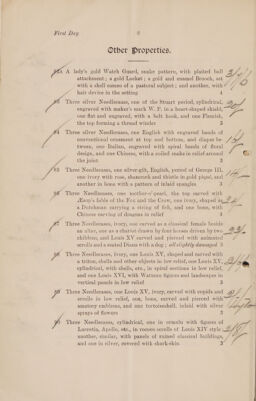 First Day
6
Other Properties.
A lady's gold Watch Guard, snake pattern, with plaited ball
attachment; a gold Locket; a gold and enamel Brooch, set
with a shell cameo of a pastoral subject; and another, with
hair device in the setting 4
Three silver Needlecases, one of the Stuart period, cylindrical,
engraved with maker's mark W. F. in a heart-shaped shield,
one flat and engraved, with a belt hook, and one Flemish,
the top forming a thread winder 3
Three silver Needlecases, one English with engraved bands of
conventional ornament at top and bottom, and diaper between,
one Italian, engraved with spiral bands of floral
design, and one Chinese, with a coiled snake in relief around
the joint 3
Three Needlecases, one silver-gilt, English, period of George III.
one ivory with rose, shamrock and thistle in gold piqué, and
another in horn with a pattern of inlaid spangles 3
Three Needlecases, one mother-o'-pearl, the top carved with
Æsop's fable of the Fox and the Crow, one ivory, shaped in
a Dutchman carrying a string of fish, and one bone, with
Chinese carving of dragons in relief 3
Three Needlecases, ivory, one carved as a classical female beside
an altar, one as a chariot drawn by four horses driven by two
children, and Louis XV carved and pierced with animated
scrolls and a seated Diana with a dog; all slightly damaged 3
Three Needlecases, ivory, one Louis XV, shaped and carved with
a triton, shells and other objects in low relief, one Louis XV,
cylindrical, with shells, etc., in spiral sections in low relief,
and one Louis XVI, with Watteau figures and landscapes in
vertical panels in low relief 3
Three Needlecases, one Louis XV, ivory, carved with cupids and
scrolls in low relief, one, bone, carved and pierced with
amatory emblems, and one tortoiseshell, inlaid with silver
sprays of flowers 3
Three Needlecases, cylindrical, one in ormolu with figures of
Lucretia, Apollo, etc., in rococo scrolls of Louis XIV style
another, similar, with panels of ruined classical buildings,
and one in silver, covered with shark-skin 3